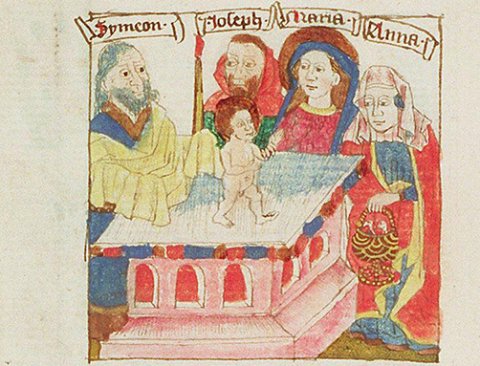 Symeon
Joseph
Maria
Anna